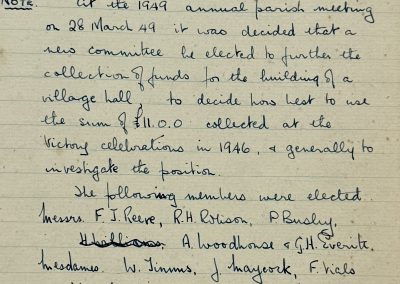 NOTE. At the 1949 annual parish meeting
on 28 March 49 it was decided that a
new committee be elected to further the
collection of funds for the building of a
village hall, to decide how best to use
the sum of £11.0.0 collected at the
Victory celebrations in 1946, & generally to
investigate the position.
The following members were elected
Messrs. F.J. Reeve, R.H. P. Busby,
A. Woodhouse & G.H. Everitt.
Mesdames. W. Timms, J. Maycock, F. Vials